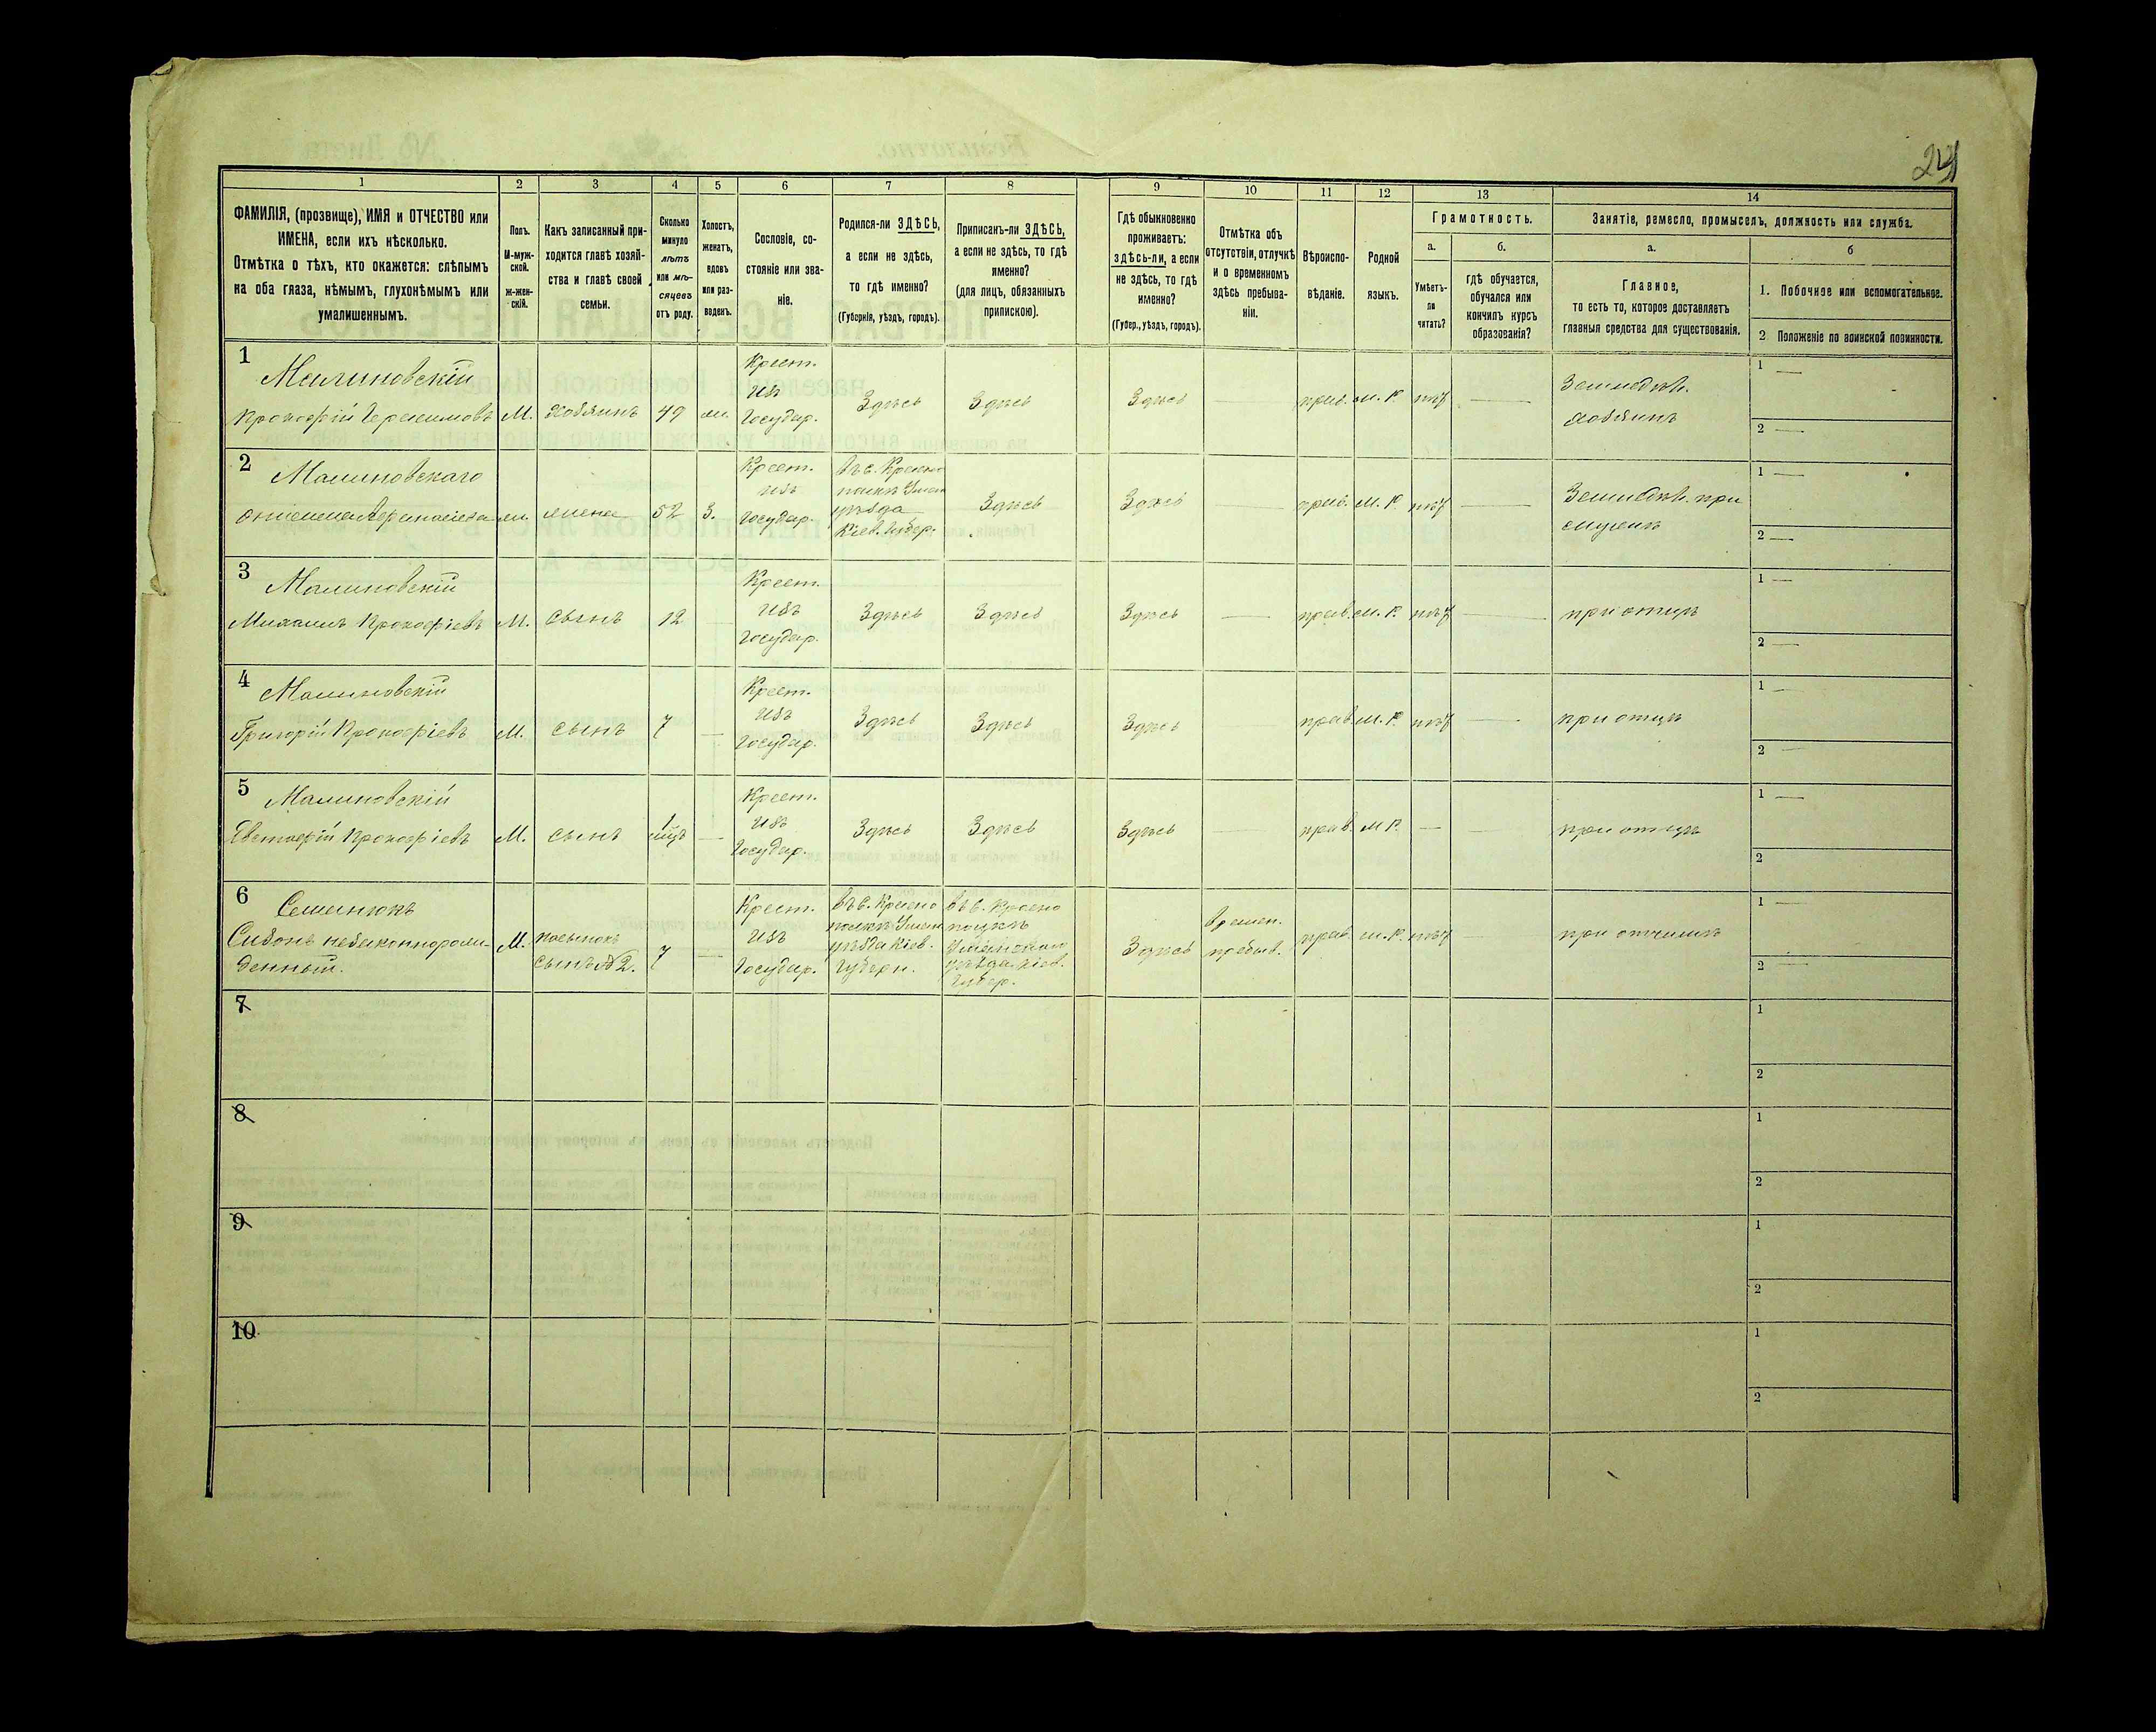 24
1 2 3 4 5 6 7 8 9 10 11 12 13 14
ФАМИЛІЯ, (прозвище), ИМЯ и ОТЧЕСТВО или
ИМЕНА, если ихъ нѣсколько.
Отмѣтка о тѣхъ, кто окажется: слѣпымъ
на оба глаза, нѣмымъ, глухонѣмымъ или
умалишеннымъ.
Полъ.
М-муж-
ской.
ж-жен-
скій.
Какъ записанный при-
ходится главѣ хозяй-
ства и главѣ своей
семьи.
Сколько
минуло
лѣтъ
или мѣ-
сяцевъ
отъ роду.
Холостъ,
женатъ,
вдовъ
или раз-
веденъ.
Сословіе, со-
стояніе или зва-
ніе.
Родился-ли ЗДѢСЬ,
а если не здѣсь,
то гдѣ именно?
(Губернія, уѣздъ, городъ).
Приписанъ-ли ЗДѢСЬ,
а если не здѣсь, то гдѣ
именно?
(для лицъ, обязанныхъ
припискою).
Гдѣ обыкновенно
проживаетъ:
здѣсь-ли, а если
не здѣсь, то гдѣ
именно?
(Губер., уѣздъ, городъ).
Отмѣтка объ
отсутствіи, отлучкѣ
и о временномъ
здѣсь пребыва-
ніи.
Вѣроиспо-
вѣданіе.
Родной
языкъ.
Грамотность.
а.
Умѣетъ-
ли
читать?
б.
гдѣ обучается,
обучался или
кончилъ курсъ
образованія?
Занятіе, ремесло, промыселъ, должность или служба.
а.
Главное,
то есть то, которое доставляетъ
главныя средства для существованія.
б
1. Побочное или вспомогательное.
2 Положеніе по воинской повинности.
1
Малиновскій
Прокофій
М.
хозяинъ
49
Крест.
изъ
Государ.
Здѣсь
Здѣсь
Здѣсь
—
прав.
м. р.
нѣт
—
Земледѣл.
хозяинъ
1 —
2 —
2
Малиновскаго
жена
52
З.
Крест.
изъ
Государ.
въ с.
уѣзда
Кіев. Губер.
Здѣсь
Здѣсь
—
прав.
м. р.
нѣт
—
Земледѣл. при
мужѣ
1 —
2 —
3
Малиновскій
Михаилъ Прокофіевъ
М.
сынъ
12
—
Крест.
изъ
Государ.
Здѣсь
Здѣсь
Здѣсь
—
прав.
м. р.
нѣт
—
при отцѣ
1 —
2 —
4
Малиновскій
Григорій Прокофіевъ
М.
сынъ
7
—
Крест.
изъ
Государ.
Здѣсь
Здѣсь
Здѣсь
—
прав.
м. р.
нѣт
—
при отцѣ
1 —
2 —
5
Малиновскій
Евстафій Прокофіевъ
М.
сынъ
1
—
Крест.
изъ
Государ.
Здѣсь
Здѣсь
Здѣсь
—
прав.
м р.
—
—
при отцѣ
1 —
2
6
Семенюкъ
незаконнорож-
денный.
М.
пасынокъ
сынъ № 2.
7
—
Крест.
изъ
Государ.
въ с. Красно
полкѣ Уман
уѣзда Кіев.
Губерн.
въ с. Красно
полкѣ
Уманскаго
уѣзда Кіев.
Губер.
Здѣсь
времен.
пребыв.
прав.
м. р.
нѣт
—
при отчимѣ
1 —
2 —
7
1
2
8
1
2
9
1
2
10
1
2